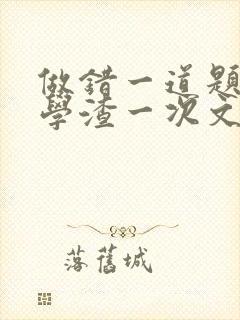 做錯一道題
學渣一次文
落舊城